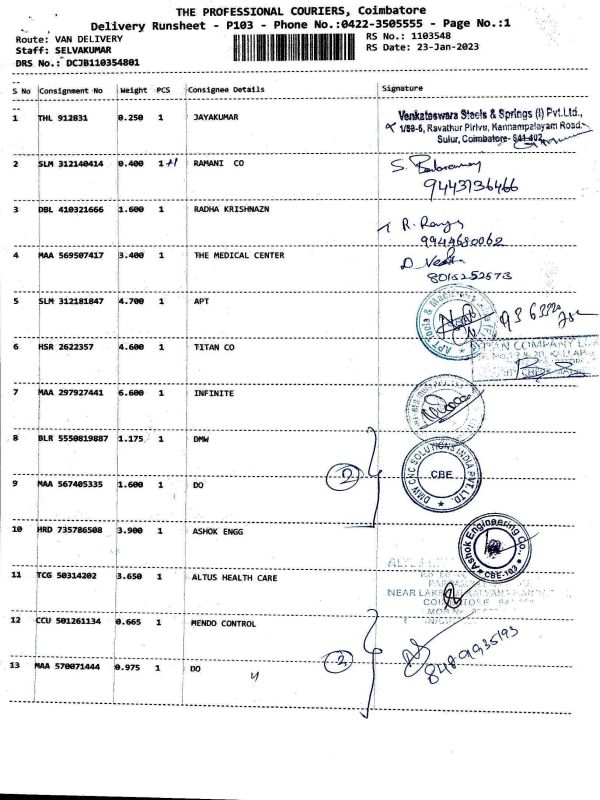 THE PROFESSIONAL COURIERS, Coimbatore
Delivery Runsheet - P103 - Phone No.:0422-3505555 - Page No.:1
Route: VAN DELIVERY
Staff: SELVAKUMAR
DRS No.: DCJB110354801
RS No.: 1103548
RS Date: 23-Jan-2023
S No Consignment No Weight PCS Consignee Details Signature
1 THL 912831 0.250 1 JAYAKUMAR
Venkateswara Steels & Springs (I) Pvt.Ltd.,
1/59-6, Ravathur Pirivu, Kannampalayam Road.
Sulur, Coimbatore- 641 402.
2 SLM 312140414 0.400 1 +1 RAMANI CO
9443736466
3 DBL 410321666 1.600 1 RADHA KRISHNAZN
9944680062
4 MAA 569507417 3.400 1 THE MEDICAL CENTER
5 SLM 312181847 4.700 1 APT
6 HSR 2622357 4.600 1 TITAN CO
7 MAA 297927441 6.600 1 INFINITE
8 BLR 5550819887 1.175 1 DMW
DMW CNC SOLUTIONS INDIA PVT. LTD.
CBE
9 MAA 567405335 1.600 1 DO
2
10 HRD 735786508 3.900 1 ASHOK ENGG
Ashok Engineering Co.,
CBE-103
11 TCG 50314202 3.650 1 ALTUS HEALTH CARE
12 CCU 501261134 0.665 1 MENDO CONTROL
13 MAA 570071444 0.975 1 DO
2